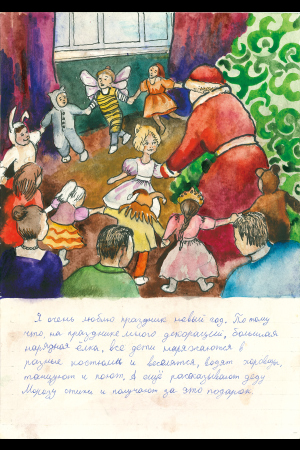 Я очень люблю праздник новый год. Потому
что, на празднике много декораций, большая
нарядная ёлка, все дети наряжаются в
разные костюмы и веселятся, водят хороводы,
танцуют и поют. А ещё рассказывают деду
Морозу стихи и получают за это подарок.